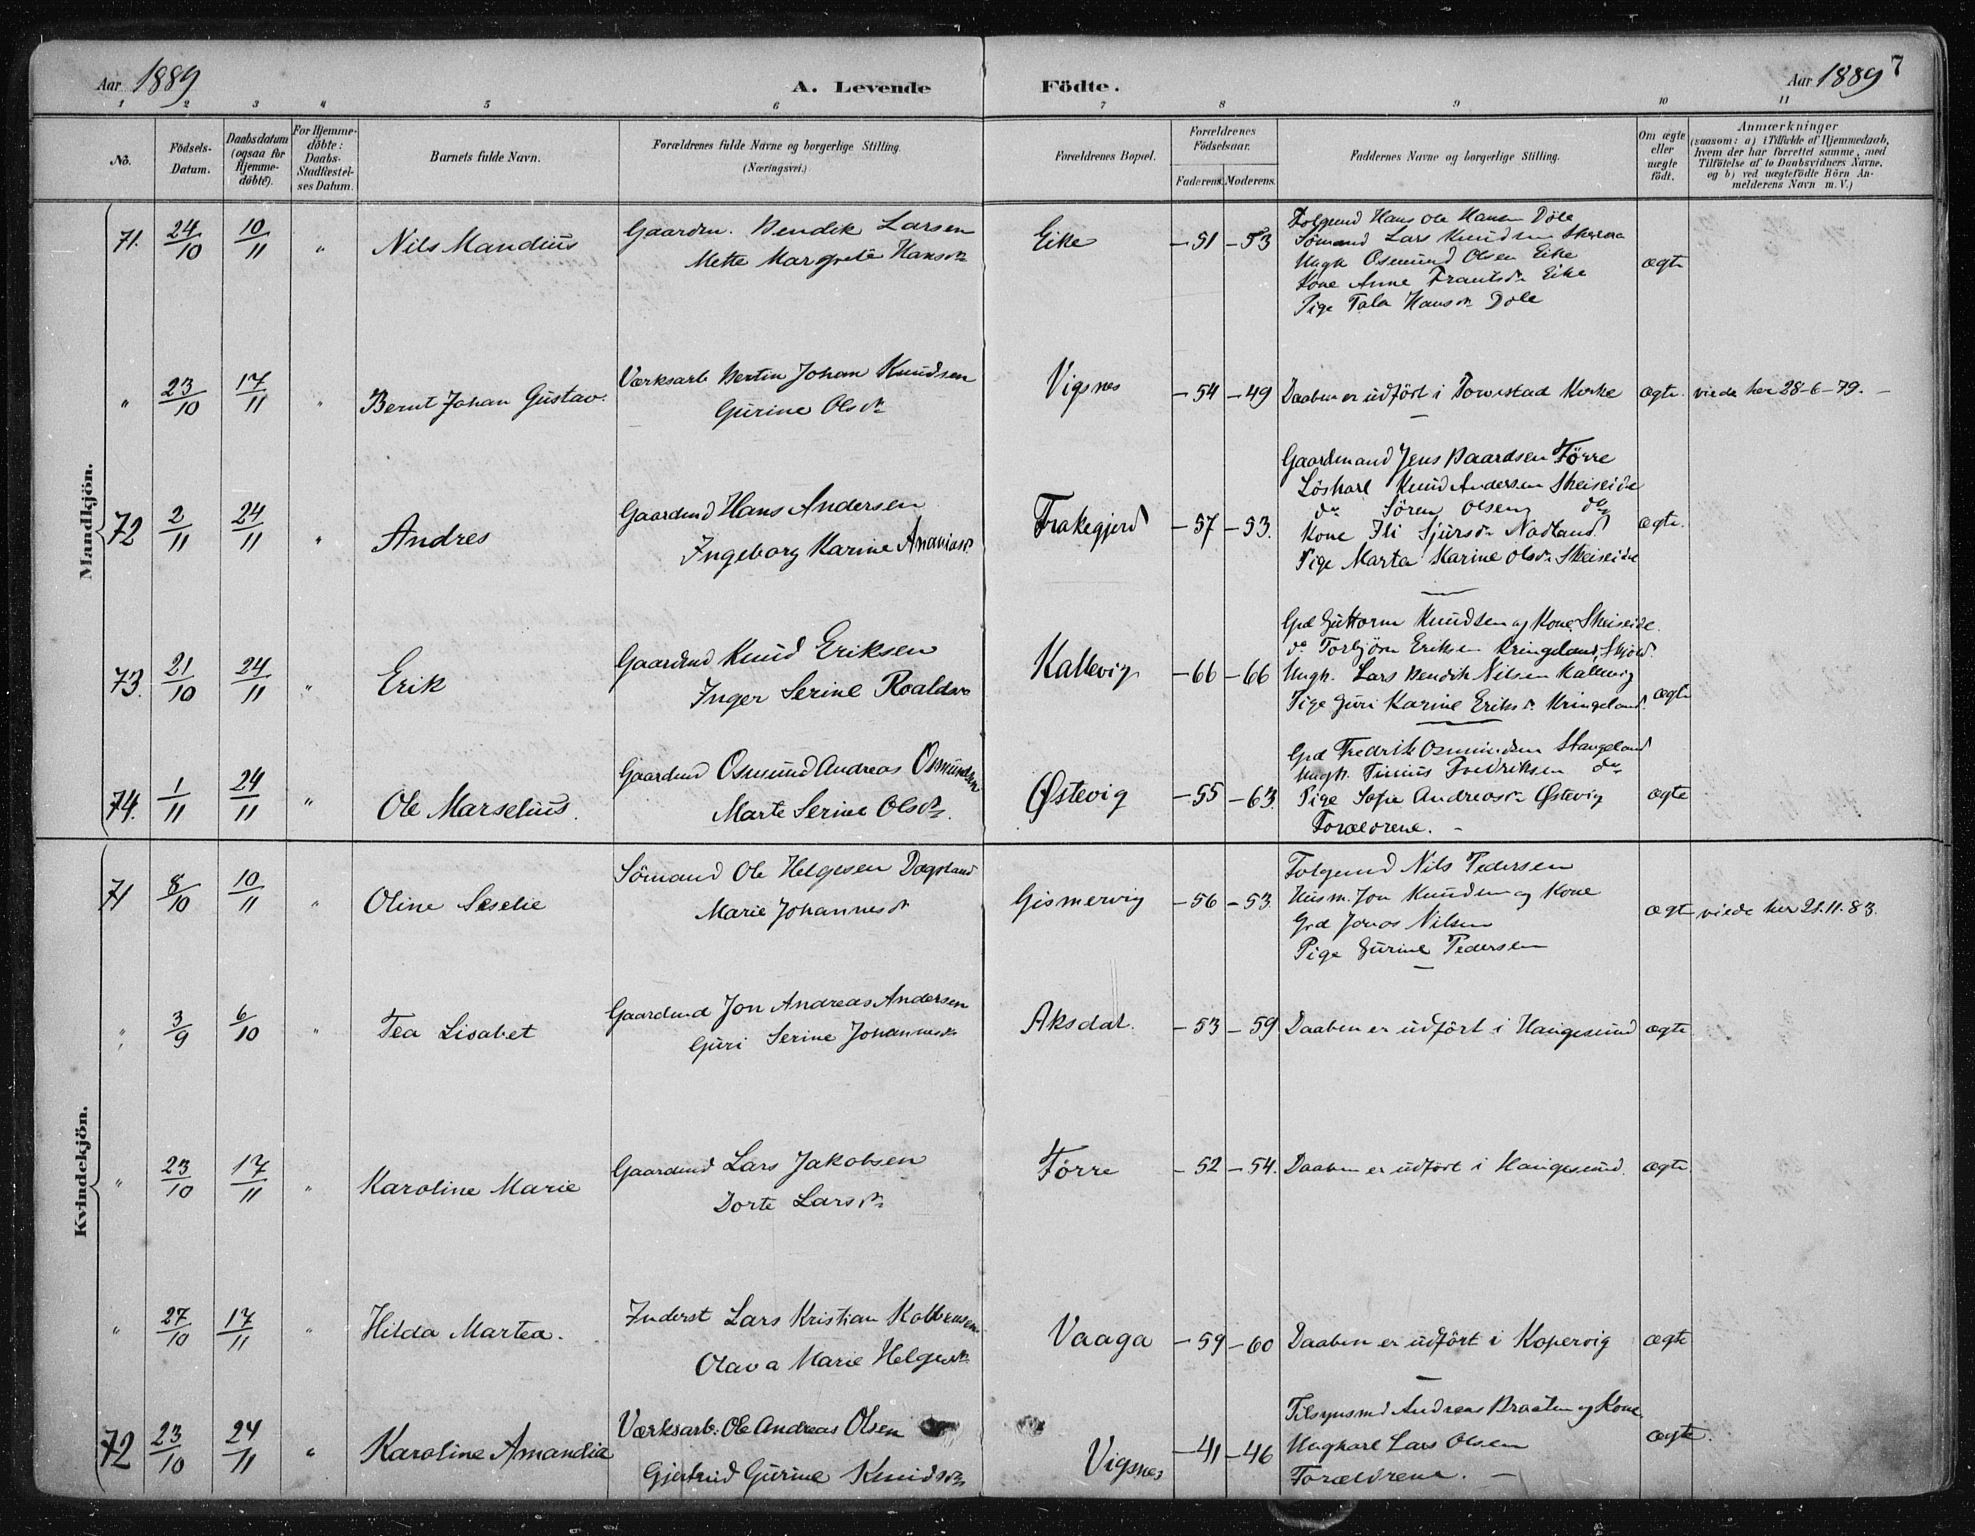 Aar 1889 A. Levende Födte. Aar 1889 7
1 2 3 4 5 6 7 8 9 10 11
No. Födsels-Datum. Daabsdatum (ogsaa for Hjemme-döbte). For Hjemme-döbte: Daabs-Stadfæstel-ses Datum. Barnets fulde Navn. Forældrenes fulde Navne og borgerlige Stilling. (Næringsvei.) Forældrenes Bopæl. Forældrenes Födselsaar. Faderens. Moderens. Faddernes Navne og borgerlige Stilling. Om ægte eller uægte födt. Anmærkninger (saasom: a) i Tilfælde af Hjemmedaab, hvem der har forrettet samme, med Tilföielse af to Daabsvidners Navne, og b) ved uægtefödte Börn An-melderens Navn m. V.)
Mandkjön.
71. 24/10 10/11 " Nils Mandius Gaardm. Bendik Larsen Eike -51 -53 Folgemd Hans Ole Hansen Döle
Mette Margrete Hansdr Sömand Lars Knudsen
Ungk Osmund Olsen Eike ægte
Kone Anne Frantsdr Eike
Pige Tala Hansdr Döle
" 23/10 17/11 " Bernt Johan Gustav. Værksarb. Bertin Johan Knudsen Vigsnes -54 -49 Daaben er udfört i Torvestad Kirke ægte. viede her 28-6-79. -
Gurine Olsdr
Gaardmand Jens Baardsen Förre
72 2/11 24/11 " Andres Gaardmd Hans Andersen Frakegjerd -57 -53. Löskarl Knud Andersen Skeiseide
Ingeborg Karine Ananiasdr do Sören Olsen do ægte.
Kone Ili Sjursdr Nodland
Pige Marta Karine Olsdr Skeiseide
73. 21/10 24/11 " Erik Gaardmd Knud Eriksen Kallevig -66 -66 Gmd Guttorm Knudsen og Kone Skeiseide.
Inger Serine Roaldsdr do Torbjörn Eriksen Kringeland, Skjold.
Ungk. Lars Bendik Nilsen Kallevig
Pige Guri Karine Eriksdr Kringeland. ægte
74. 1/11 24/11 " Ole Marselius. Gaardmd Osmund Andreas Osmundsen Østevig -55 -63. Gmd Fredrik Osmundsen Stangeland
Marte Serine Olsdr. Ungk. Tinius Fredriksen do
Pige Sofie Andreasdr Østevig ægte
Forældrene. -
Kvindekjön.
71 8/10 10/11 " Oline Seselie Sömand Ole Helgesen Dagsland Gismervig -56 -53. Folgemd Nils Pedersen
Marie Johannesdr Husm. Jon Knudsen og Kone
Gmd Jonas Nilsen ægte viede her 21.11.83.
Pige Gurine Pedersen
" 3/9 6/10 " Tea Lisabet Gaardmd Jon Andreas Andersen Aksdal. -53 -59 Daaben er udfört i Haugesund ægte
Guri Serine Johannesdr
" 23/10 17/11 " Karoline Marie Gaardmd Lars Jakobsen Förre -52 -54. Daaben er udfört i Haugesund. ægte
Dorte Larsdr
" 27/10 17/11 " Hilda Martea. Inderst Lars Kristian Kolbensen Vaaga -59 -60 Daaben er udfört i Kopervig ægte
Olava Marie Helgesdr
72 23/10 24/11 " Karoline Amandia Værksarb. Ole Andreas Olsen Vigsnes -41 -46 Tilsynsmd Andreas Braaten og Kone
Gjertrud Gurine Knudsdr Ungkarl Lars Olsen ægte.
Forældrene. -